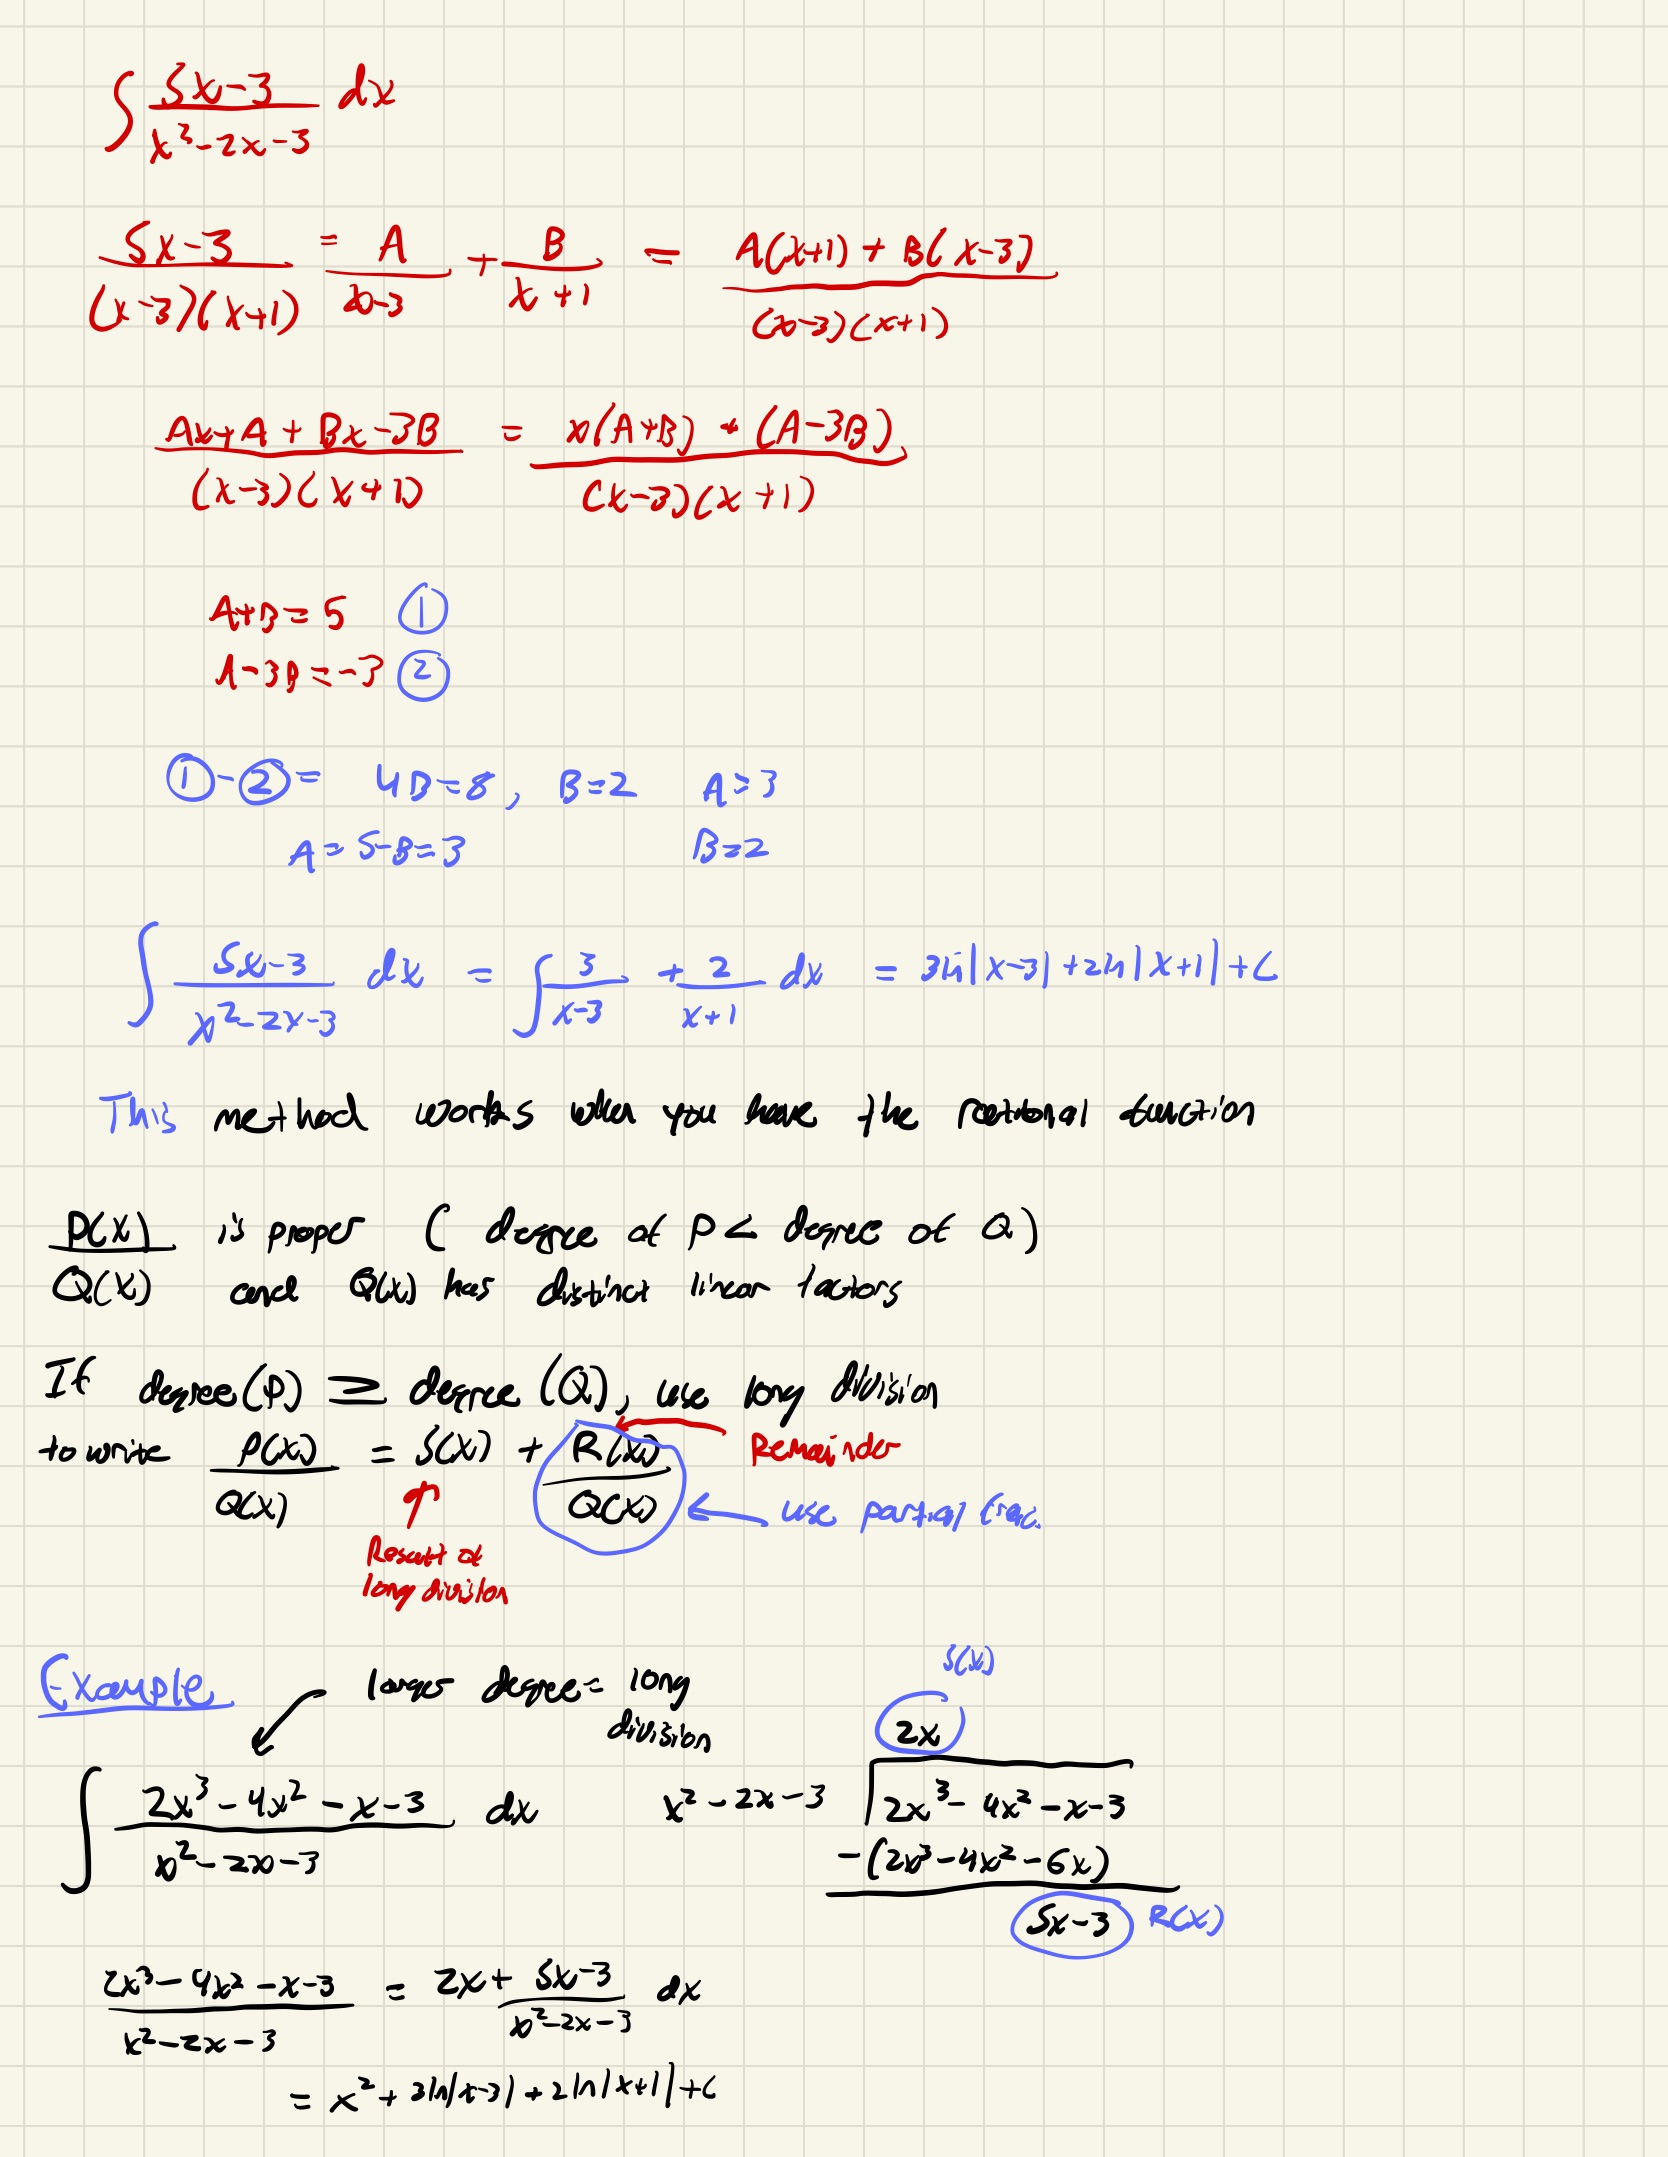 ∫ (5x-3)/(x²-2x-3) dx
(5x-3)/((x-3)(x+1)) = A/(x-3) + B/(x+1) = (A(x+1) + B(x-3))/((x-3)(x+1))
(Ax+A + Bx-3B)/((x-3)(x+1)) = (x(A+B) + (A-3B))/((x-3)(x+1))
A+B = 5 ①
A-3B = -3 ②
①-② = 4B=8, B=2 A=3
A = 5-B=3 B=2
∫ (5x-3)/(x²-2x-3) dx = ∫ 3/(x-3) + 2/(x+1) dx = 3ln|x-3| + 2ln|x+1| + C
This method works when you have the rational function
P(x)/Q(x) is proper ( degree of P < degree of Q )
and Q(x) has distinct linear factors
If degree(P) ≥ degree (Q), use long division
to write P(x)/Q(x) = S(x) + R(x)/Q(x) Remainder
use partial frac.
Result of
long division
Example larger degree = long
division
S(x)
2x
∫ (2x³-4x²-x-3)/(x²-2x-3) dx x²-2x-3 2x³-4x²-x-3
-(2x³-4x²-6x)
5x-3 R(x)
(2x³-4x²-x-3)/(x²-2x-3) = 2x + (5x-3)/(x²-2x-3) dx
= x² + 3ln|x-3| + 2ln|x+1| + C